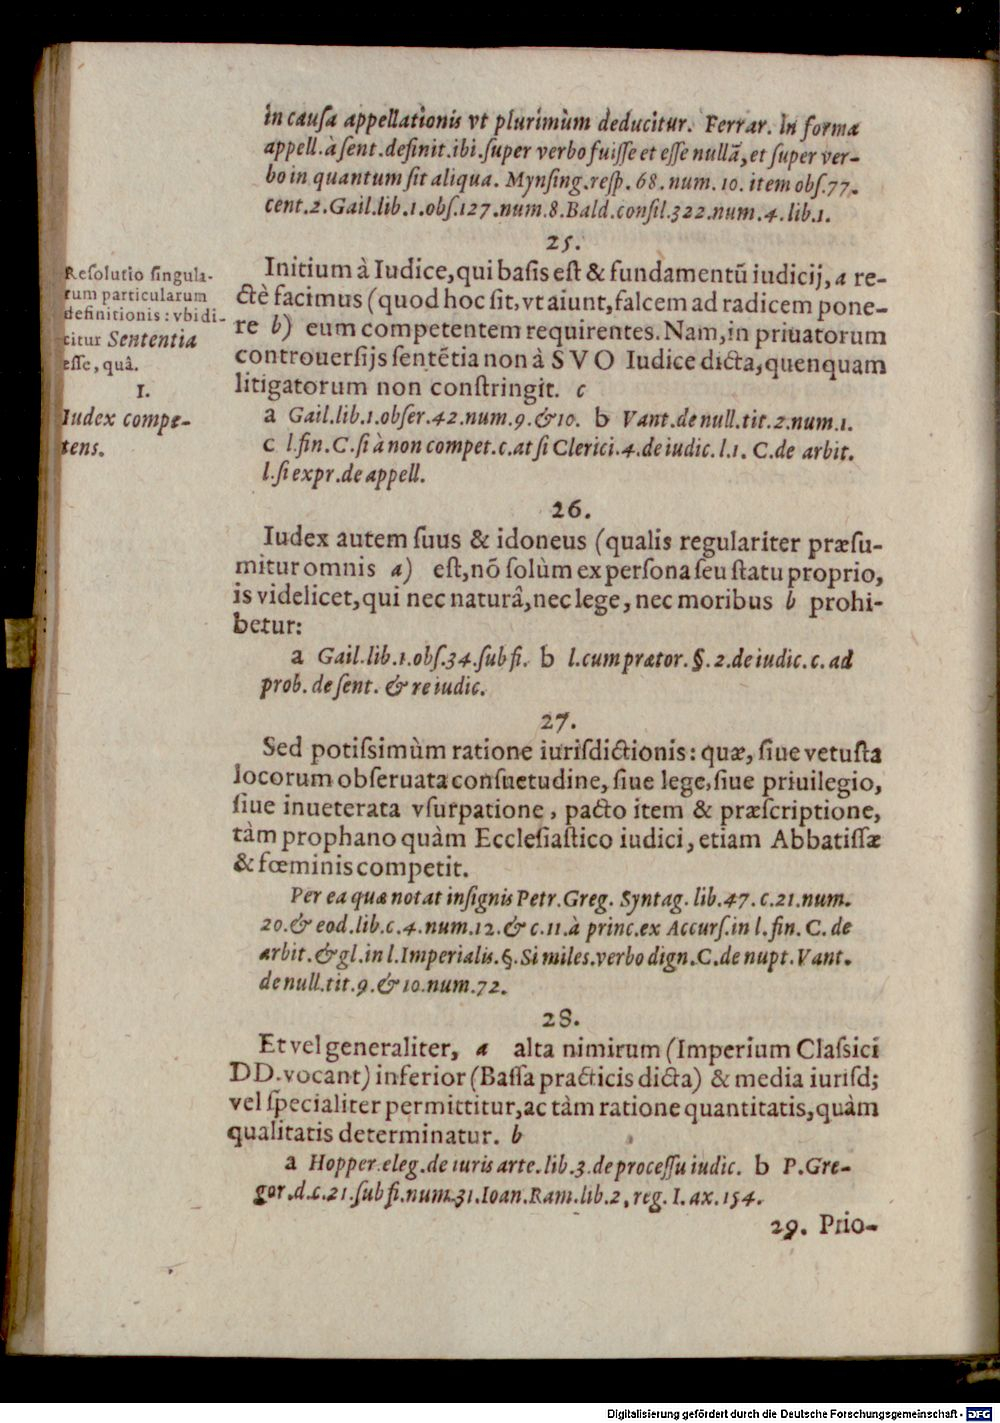 in cauſa appellationis vt plurimùm deducitur. Ferrar. in forma
appell. à ſent. definit. ibi. ſuper verbo fuiſſe et eſſe nullā, et ſuper ver-
bo in quantum ſit aliqua. Mynſing. reſp. 68. num. 10. item obſ. 77.
cent. 2. Gail. lib. 1. obſ. 127. num. 8. Bald. conſil. 322. num. 4. lib. 1.
25.
Reſolutio ſingula-
rum particularum
definitionis: vbi di-
citur Sententia
eſſe, quâ.
I.
Iudex compe-
tens.
Initium à Iudice, qui baſis eſt & fundamentũ iudicij, a re-
ctè facimus (quod hoc ſit, vt aiunt, falcem ad radicem pone-
re b) eum competentem requirentes. Nam, in priuatorum
controuerſijs ſentẽtia non à SVO Iudice dicta, quenquam
litigatorum non conſtringit. c
a Gail. lib. 1. obſer. 42. num. 9. & 10. b Vant. de null. tit. 2. num. 1.
c l. fin. C. ſi à non compet. c. at ſi Clerici. 4. de iudic. l. 1. C. de arbit.
l. ſi expr. de appell.
26.
Iudex autem ſuus & idoneus (qualis regulariter præſu-
mitur omnis a) eſt, nō ſolùm ex perſona ſeu ſtatu proprio,
is videlicet, qui nec naturâ, nec lege, nec moribus b prohi-
betur:
a Gail. lib. 1. obſ. 34. ſub fi. b l. cum prætor. §. 2. de iudic. c. ad
prob. de ſent. & re iudic.
27.
Sed potiſsimùm ratione iurisdictionis: quæ, ſiue vetuſta
locorum obſeruata conſuetudine, ſiue lege, ſiue priuilegio,
ſiue inueterata vſurpatione, pacto item & præſcriptione,
tàm prophano quàm Eccleſiaſtico iudici, etiam Abbatiſſæ
& fœminis competit.
Per ea quæ notat inſignis Petr. Greg. Syntag. lib. 47. c. 21. num.
20. & eod. lib. c. 4. num. 12. & c. 11. à princ. ex Accurſ. in l. fin. C. de
arbit. & gl. in l. Imperialis. §. Similes. verbo dign. C. de nupt. Vant.
de null. tit. 9. & 10. num. 72.
28.
Et vel generaliter, a alta nimirum (Imperium Claſsici
DD. vocant) inferior (Baſſa practicis dicta) & media iurisd;
vel ſpecialiter permittitur, ac tàm ratione quantitatis, quàm
qualitatis determinatur. b
a Hopper. eleg. de iuris arte. lib. 3. de proceſſu iudic. b P. Gre-
gor. d. c. 21. ſub fi. num. 31. Ioan. Ram. lib. 2, reg. I. ax. 154.
29. Prio-
Digitalisierung gefördert durch die Deutsche Forschungsgemeinschaft - DFG